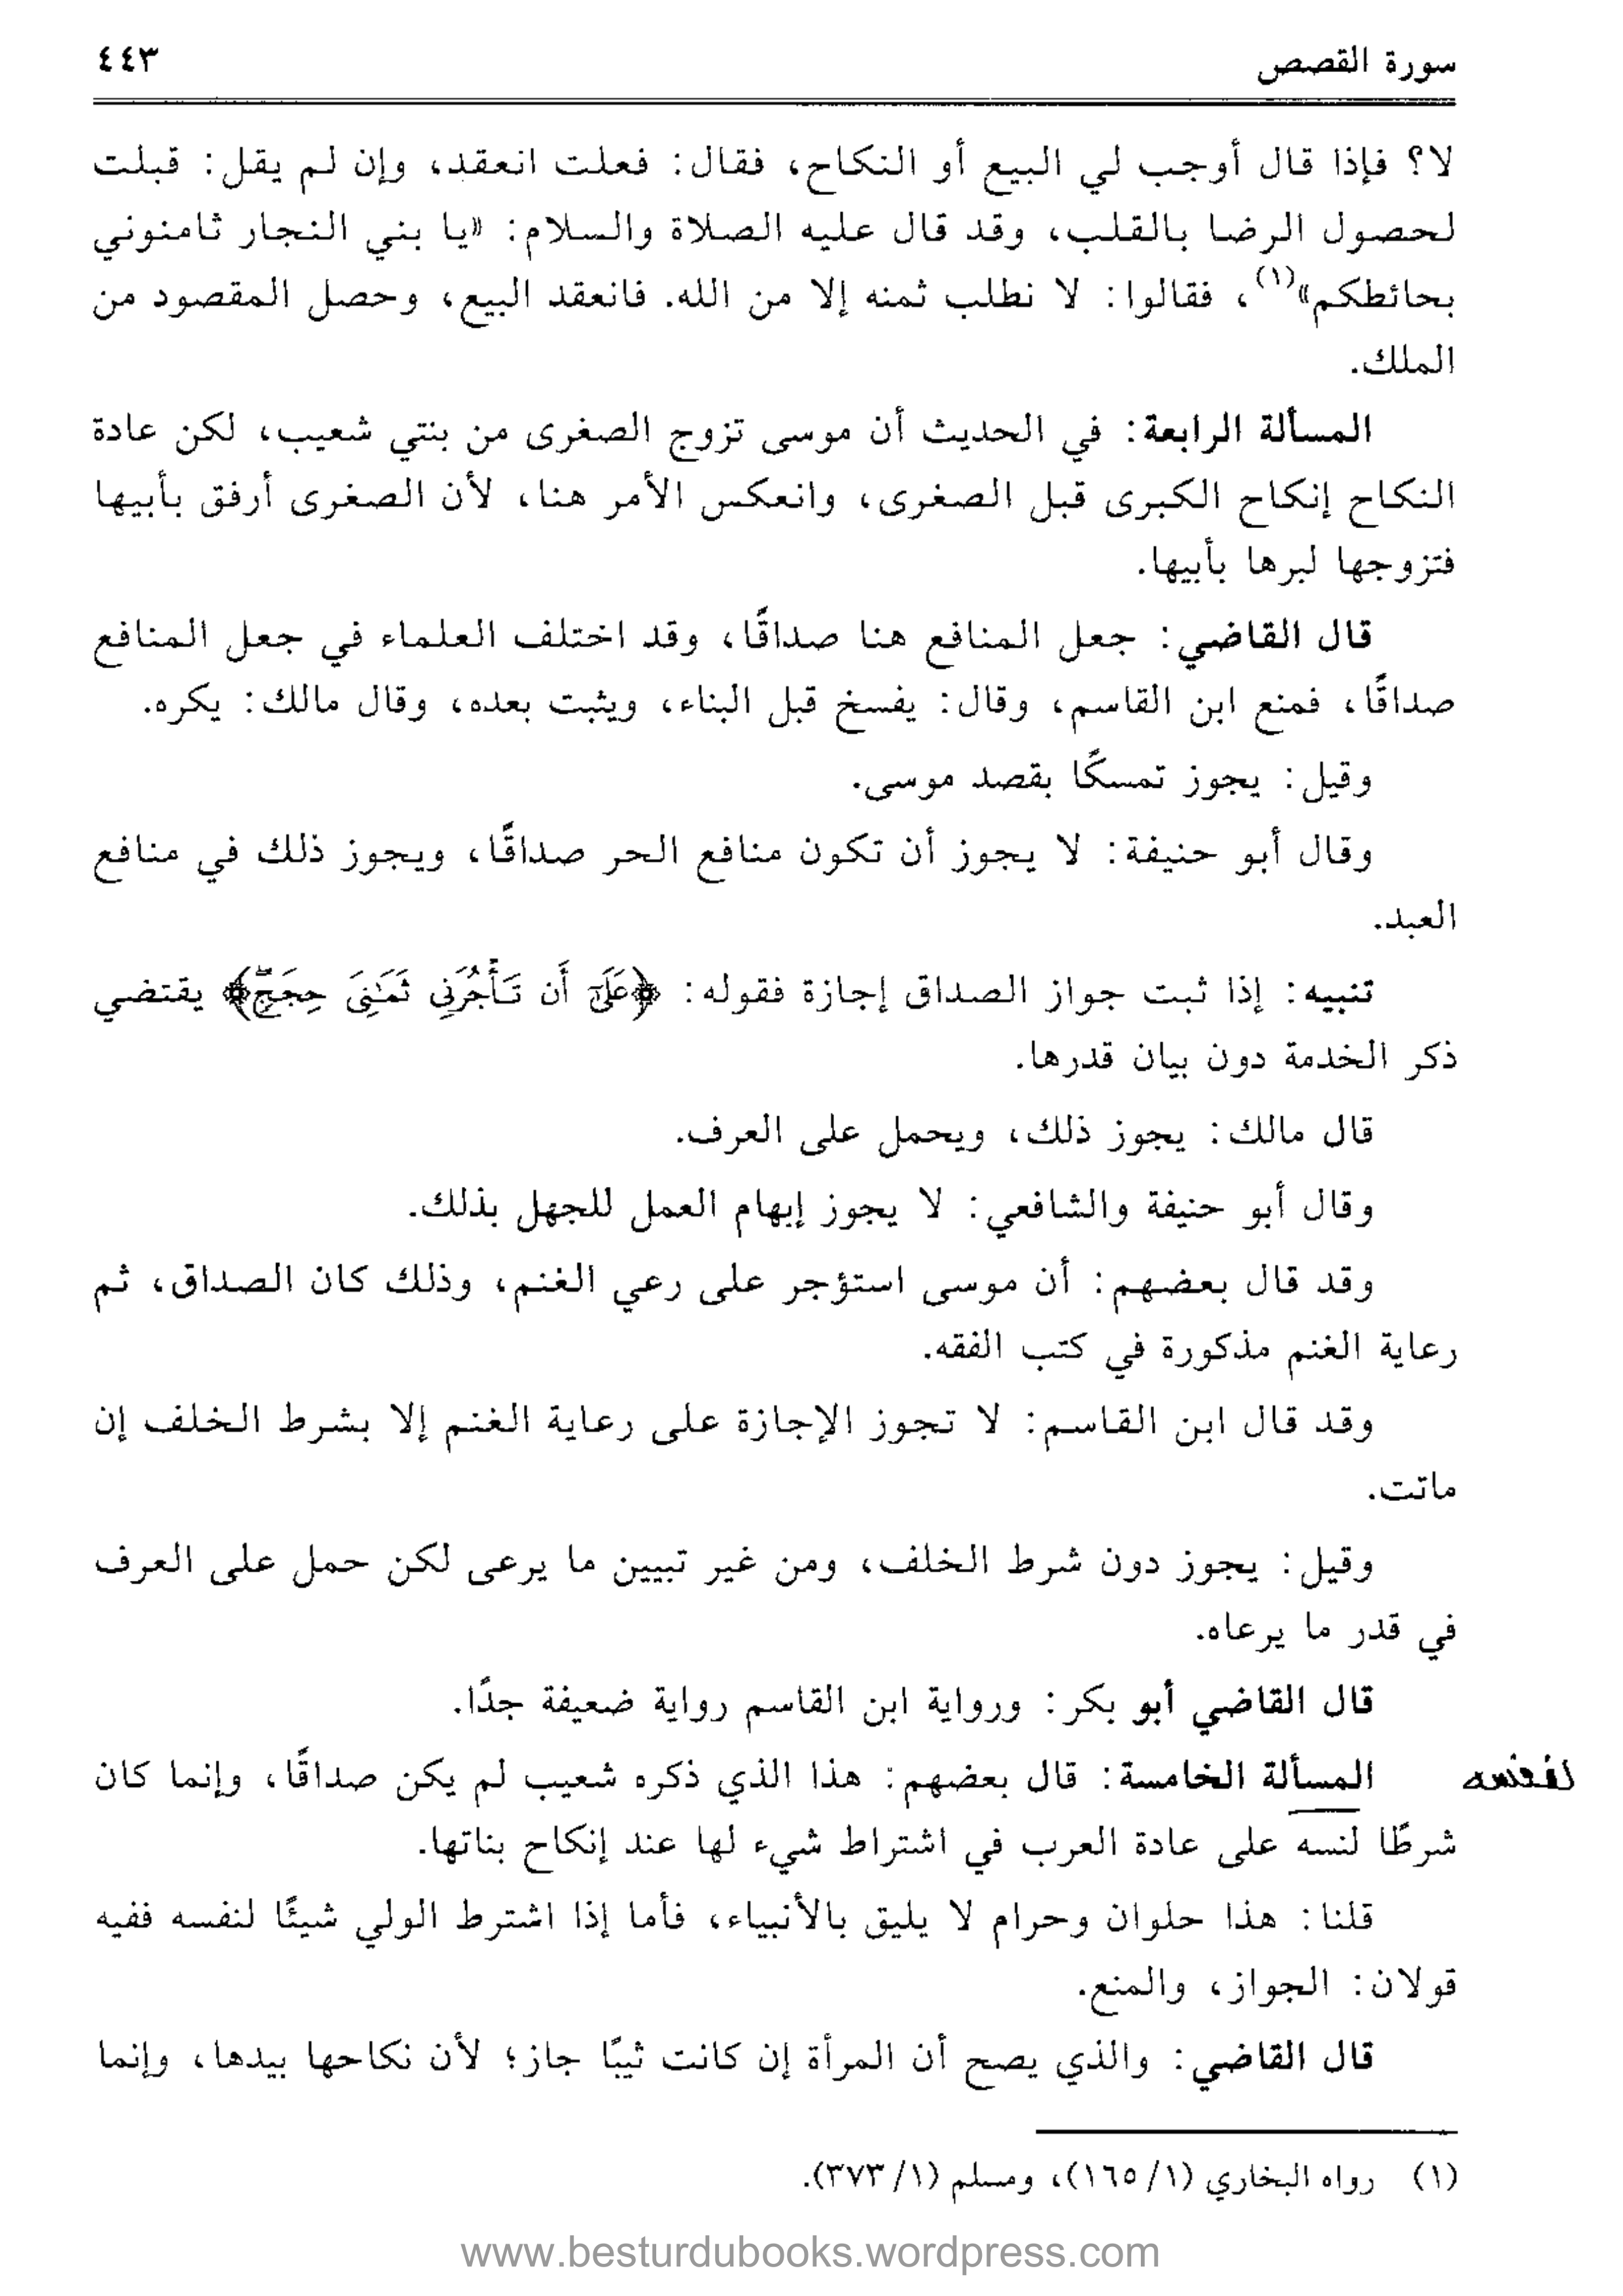 سورة القصص ٤٤٣
لا؟ فإذا قال أوجب لي البيع أو النكاح، فقال: فعلت انعقد، وإن لم يقل: قبلت
لحصول الرضا بالقلب، وقد قال عليه الصلاة والسلام: «يا بني النجار ثامنوني
بحائطكم»(١)، فقالوا: لا نطلب ثمنه إلا من الله. فانعقد البيع، وحصل المقصود من
الملك.
المسألة الرابعة: في الحديث أن موسى تزوج الصغرى من بنتي شعيب، لكن عادة
النكاح إنكاح الكبرى قبل الصغرى، وانعكس الأمر هنا، لأن الصغرى أرفق بأبيها
فتزوجها لبرها بأبيها.
قال القاضي: جعل المنافع هنا صداقًا، وقد اختلف العلماء في جعل المنافع
صداقًا، فمنع ابن القاسم، وقال: يفسخ قبل البناء، ويثبت بعده، وقال مالك: يكره.
وقيل: يجوز تمسكًا بقصد موسى.
وقال أبو حنيفة: لا يجوز أن تكون منافع الحر صداقًا، ويجوز ذلك في منافع
العبد.
تنبيه: إذا ثبت جواز الصداق إجازة فقوله: ﴿عَلَىٰٓ أَن تَأْجُرَنِى ثَمَٰنِىَ حِجَجٍۖ﴾ يقتضي
ذكر الخدمة دون بيان قدرها.
قال مالك: يجوز ذلك، ويحمل على العرف.
وقال أبو حنيفة والشافعي: لا يجوز إبهام العمل للجهل بذلك.
وقد قال بعضهم: أن موسى استؤجر على رعي الغنم، وذلك كان الصداق، ثم
رعاية الغنم مذكورة في كتب الفقه.
وقد قال ابن القاسم: لا تجوز الإجازة على رعاية الغنم إلا بشرط الخلف إن
ماتت.
وقيل: يجوز دون شرط الخلف، ومن غير تبيين ما يرعى لكن حمل على العرف
في قدر ما يرعاه.
قال القاضي أبو بكر: ورواية ابن القاسم رواية ضعيفة جدًا.
المسألة الخامسة: قال بعضهم: هذا الذي ذكره شعيب لم يكن صداقًا، وإنما كان
شرطًا لنسه على عادة العرب في اشتراط شيء لها عند إنكاح بناتها.
قلنا: هذا حلوان وحرام لا يليق بالأنبياء، فأما إذا اشترط الولي شيئًا لنفسه ففيه
قولان: الجواز، والمنع.
قال القاضي: والذي يصح أن المرأة إن كانت ثيبًا جاز؛ لأن نكاحها بيدها، وإنما
(١) رواه البخاري (١/ ١٦٥)، ومسلم (١/ ٣٧٣).
www.besturdubooks.wordpress.com